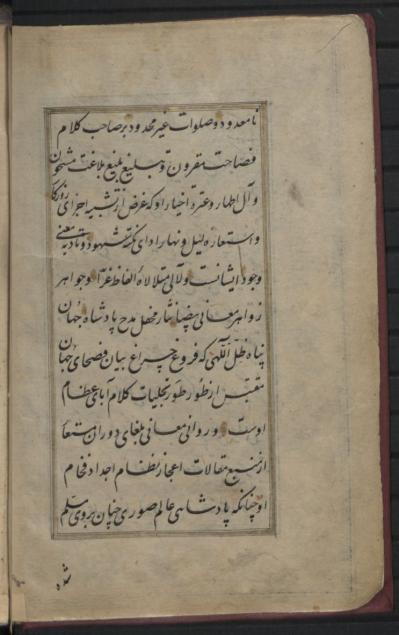 نامعدود و صلوات غیر محدود بر صاحب کلام
فصاحت مقرون و تبلیغ بلیغ بلاغت مشحون
و آل اطهار و عترة اخیار او که غرض از تشبیه اجزای روزگار
و استعاره لیل و نهار ادای نکته شهود و تادیه معنی
وجود ایشانست و لآلی متلالاه الفاظ غرّا و جواهر
زواهر معانی بیضا نثار محفل مدح پادشاه جهان
پناه ظل اللهی که فروغ چراغ بیان فصحای جهان
مقتبس از طور طور تجلیات کلام آبای عظام
اوست و روانی معانی بلغای دوران مستعار
از منبع مقالات اعجاز نظام اجداد فخام
او چنانکه پادشاهی عالم صوری چنان بروی مسلم
شده